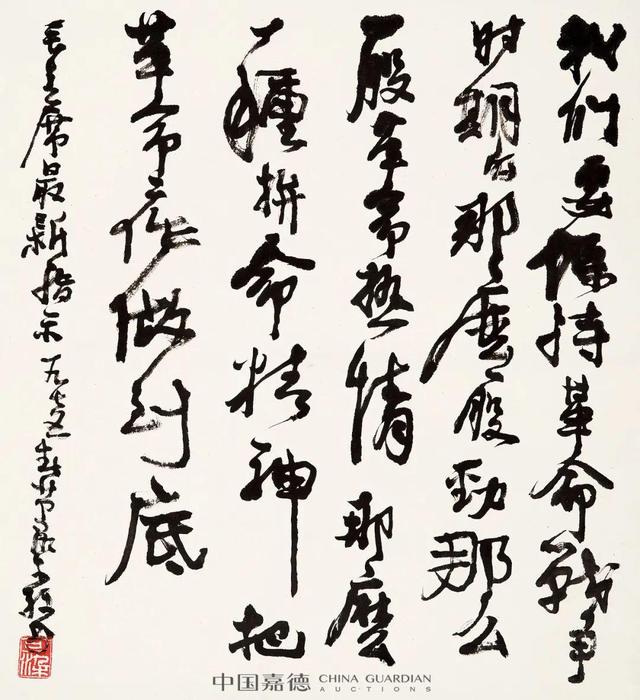 我们要保持革命战争
时期的那麽股劲那么
一股革命热情那麽
一種拚命精神把
革命工作做到底
毛主席最新指示一九七五春
中国嘉德 CHINA GUARDIAN
AUCTIONS